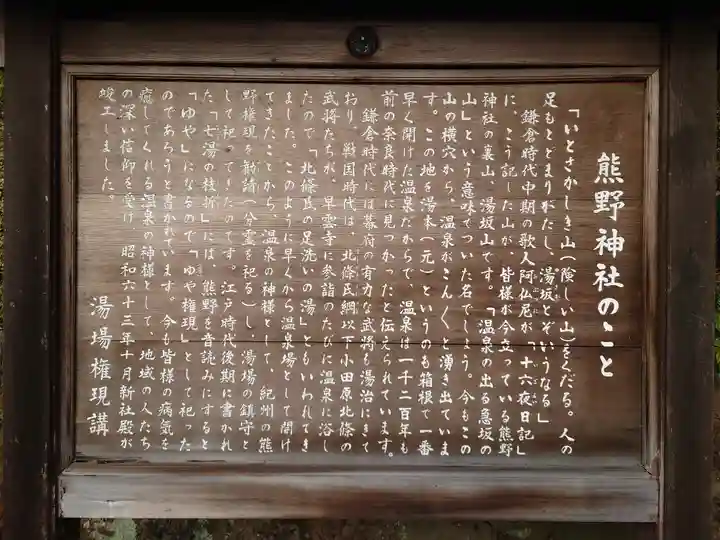 熊野神社のこと
「いとさかしき山(険しい山)をくだる。人の
足もとどまりがたし、湯坂とぞいうなる」
鎌倉時代中期の歌人阿仏尼が「十六夜日記」
に、こう記した山が、皆様が今立っている熊野
神社の裏山、湯坂山です。「温泉の出る急坂の
山」という意味でついた名でしょう。今もこの
山の横穴から、温泉がこんくと湧き出ていま
す。この地を湯本(元)というのも箱根で一番
早く開けた温泉だからで、温泉は一千二百年も
前の奈良時代に見つかったと伝えられています。
鎌倉時代には幕府の有力な武将も湯治にきて
おり、戦国時代は、北條氏綱以下小田原北條の
武将たちが、早雲寺に参詣のたびに温泉に浴し
たので「北條氏の足洗いの湯」ともいわれてき
ました。このように早くから温泉場として開け
てきたことから、温泉の神様として、紀州の熊
野権現を勧請(分霊を祀る)し、湯場の鎮守と
して祀ってきたのです。江戸時代後期に書かれ
た「七湯の枝折」には、熊野を音読みにすると
「ゆや」になるので「ゆや権現」として祀った
のであろうと書かれています。今も皆様の病気を
癒してくれる温泉の神様として、地域の人たち
の深い信仰を受け、昭和六十三年十月新社殿が
竣工しました。
湯場権現講